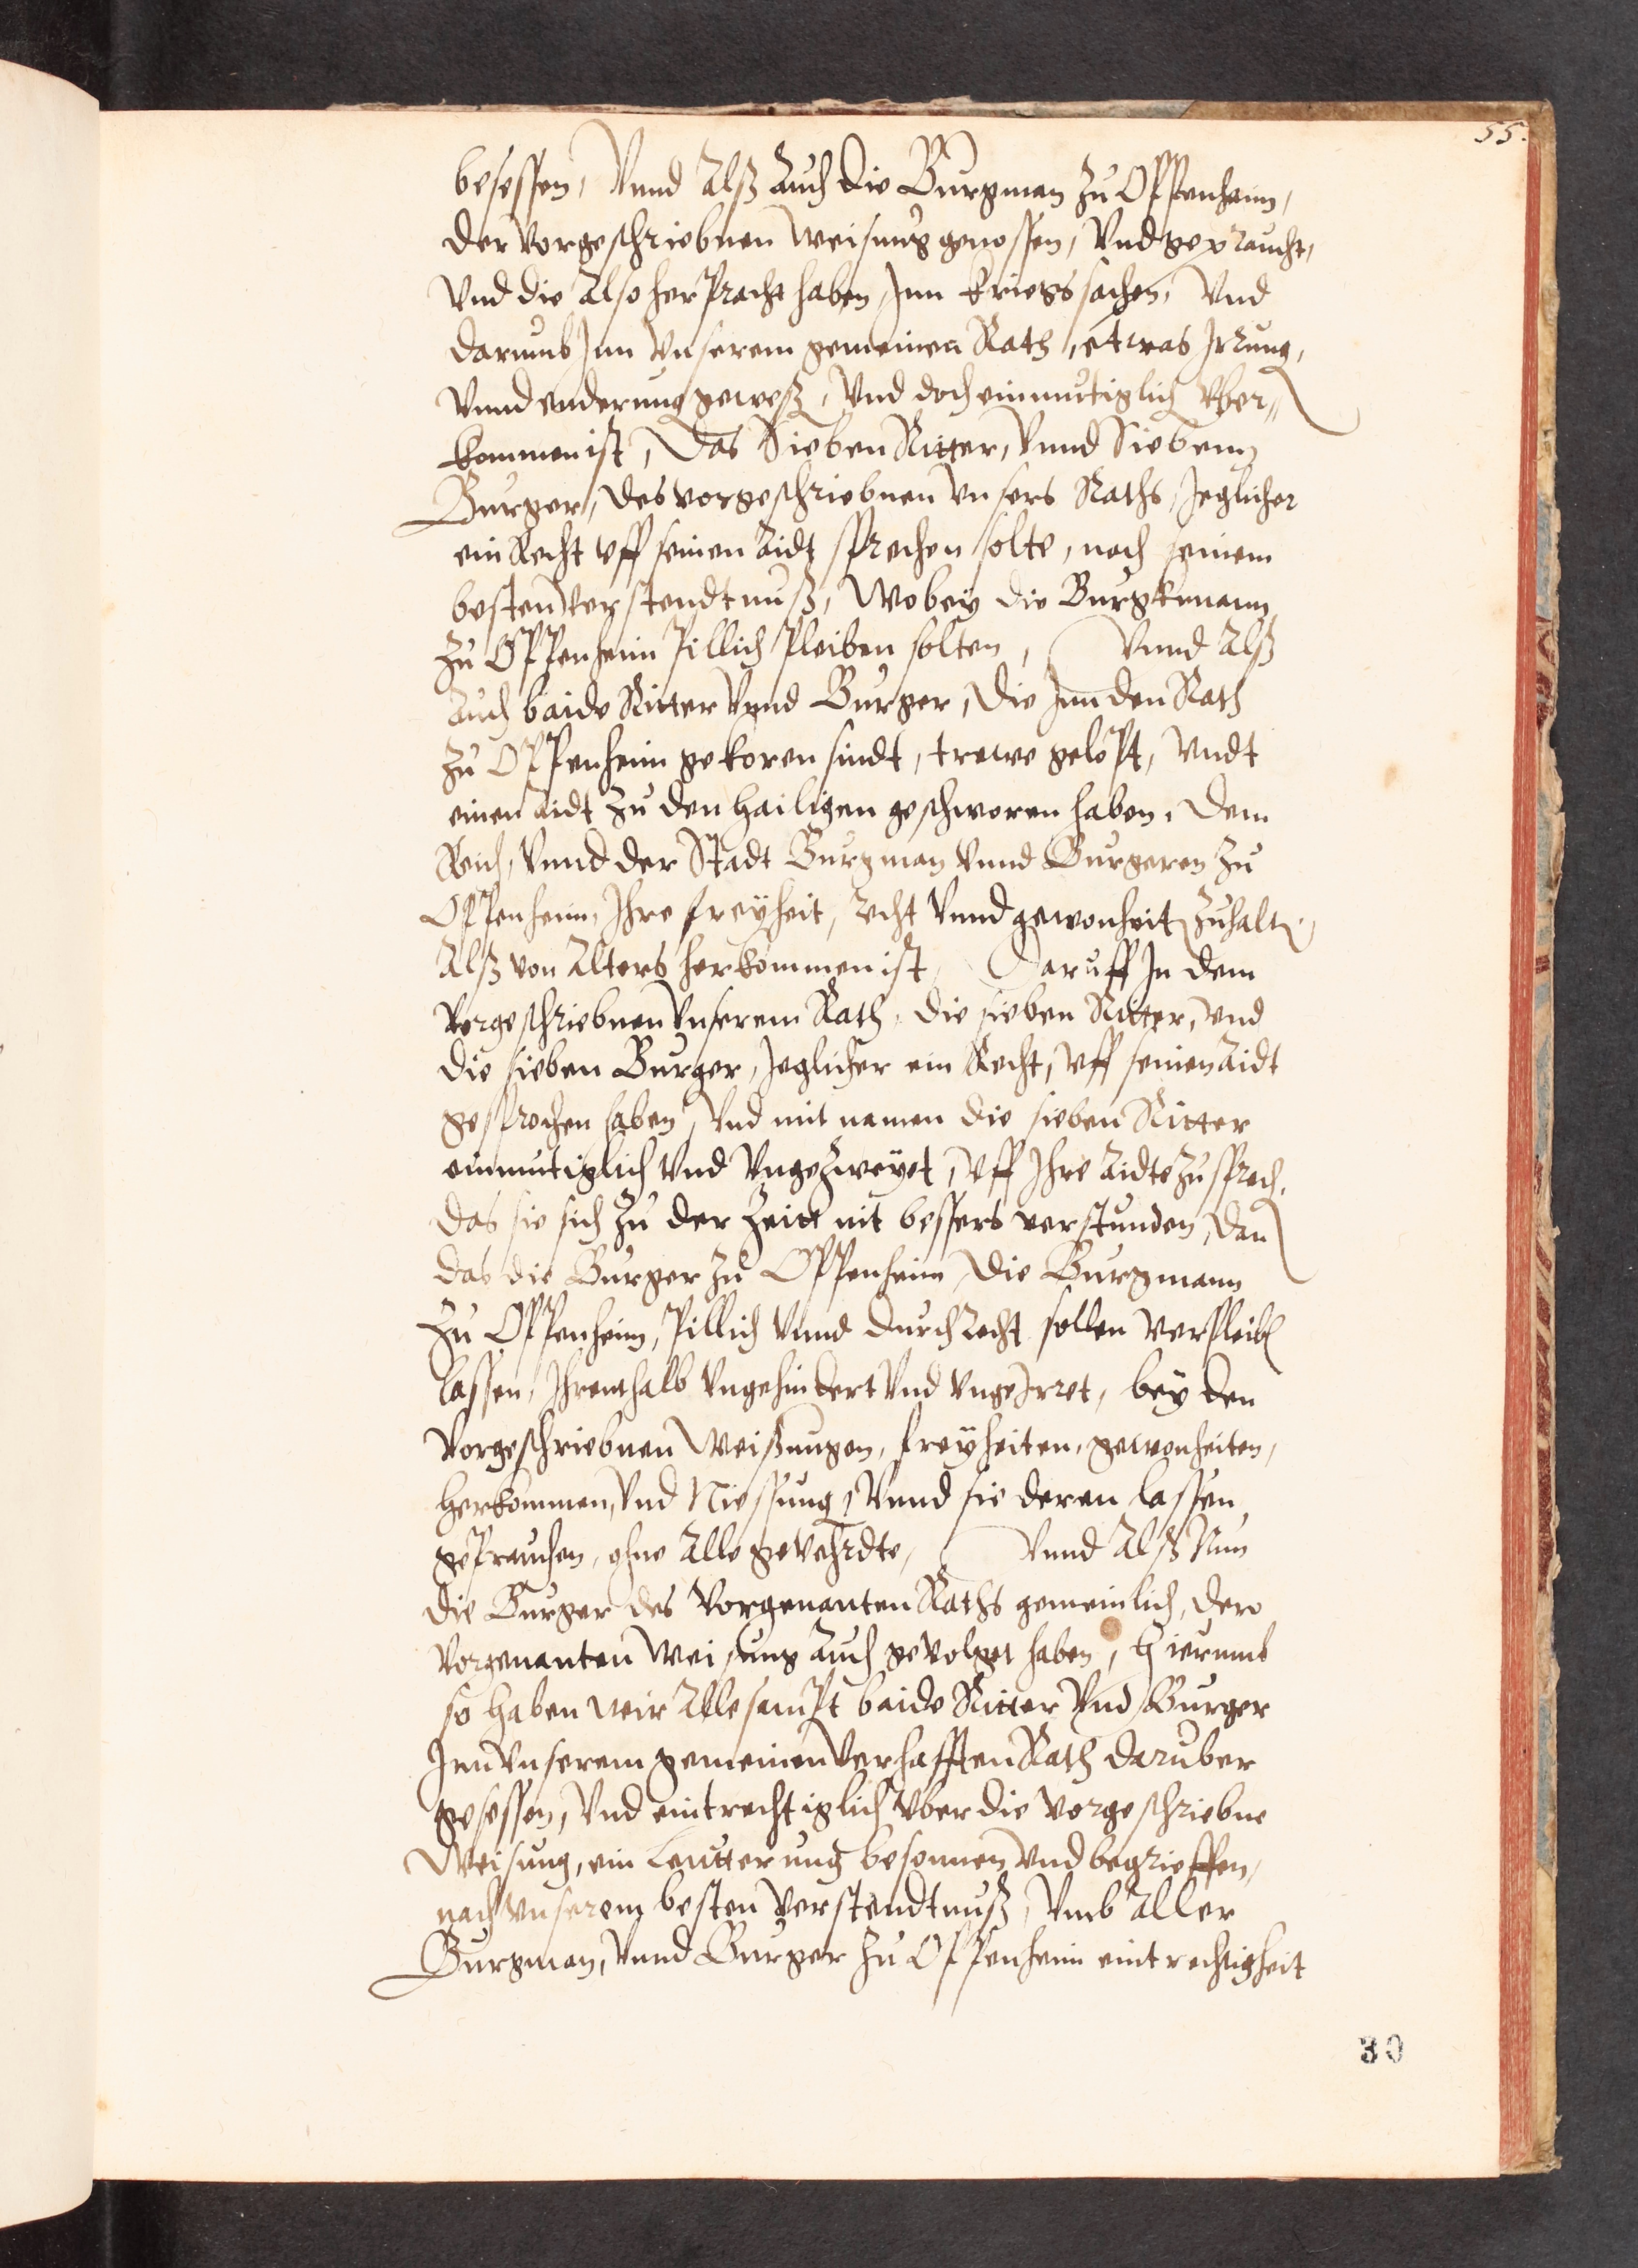 55.
besessen, Vnnd Alß Auch die Burgman zu Oppenhaim,
der vorgeschriebnen weisung genossen, Vnd gepraucht,
Vnd die Also herpracht haben, Jnn kriegssachen, Vnd
darumb Jnn Vnserem gemeinen Rath, etwas Jrrung,
Vnnd enderung geweß, Vnd doch einmutiglich Vber„
kommen ist, Das Sieben Ritter, Vnnd Siebenn
Burger, des vorgeschriebnen Vnsers Raths, Jeglicher
ein Recht vff seinen Aidt sprechen solte, nach seinem
besten Verstendtnuß, Wobey die Burgkmann
zu Oppenheim pillich pleiben solten, Vnnd Alß
Auch baide Ritter Vnnd Burger, die Jnn den Rath
zu Oppenheim gekoren sindt, trewe gelopt, Vndt
einen Aidt zu den Hailigen geschworen haben, dem
Reich, Vnnd der Stadt Burgman Vnnd Burgeren zu
Oppenheim, Jhre freyheit, recht Vnnd gewonheit zuhalten,
Alß von Alters herkommen ist, Daruff Jn dem
vorgeschriebnen Vnserem Rath, die sieben Ritter, vnd
die sieben Burger, Jeglicher ein Recht, Vff seinen Aidt
gesprochen haben, Vnd mit namen die sieben Ritter
einmutiglich Vnd Vngezweyet, Vff Jhre Aidte zusprech.
das sie sich zu der Zeitt nit bessers verstunden, dan
das die Burger zu Oppenheim, die Burgmann
zu Oppenheim, pillich Vnnd durch recht sollen verpleiben
lassen, Jhrenthalb Vngehindert Vnd VngeJrret, bey den
Vorgeschriebnen Weißungen, freyheiten, gewonheiten,
herkommen, Vnd Niessung, Vnnd sie deren lassen
geprauchen, ohne Alle gevehrdte, Vnnd Alß Nun
die Burger des Vorgenanten Raths gemeinlich, dero
Vorgenanten Weisung Auch gevolget haben, Hierumb
so haben wir Alle sampt baide Ritter Vnd Burger
Jnn Vnserem gemeinen Verhafften Rath daruber
gesessen, Vnd eintrechtiglich Vber die Vorgeschriebne
Weisung, ein Leutterung besonnen Vnd begrieffen,
nach Vnserem besten Verstendtnuß, Vmb Aller
Burgman, Vnnd Burger zu Oppenheim eintrechtigheit
30